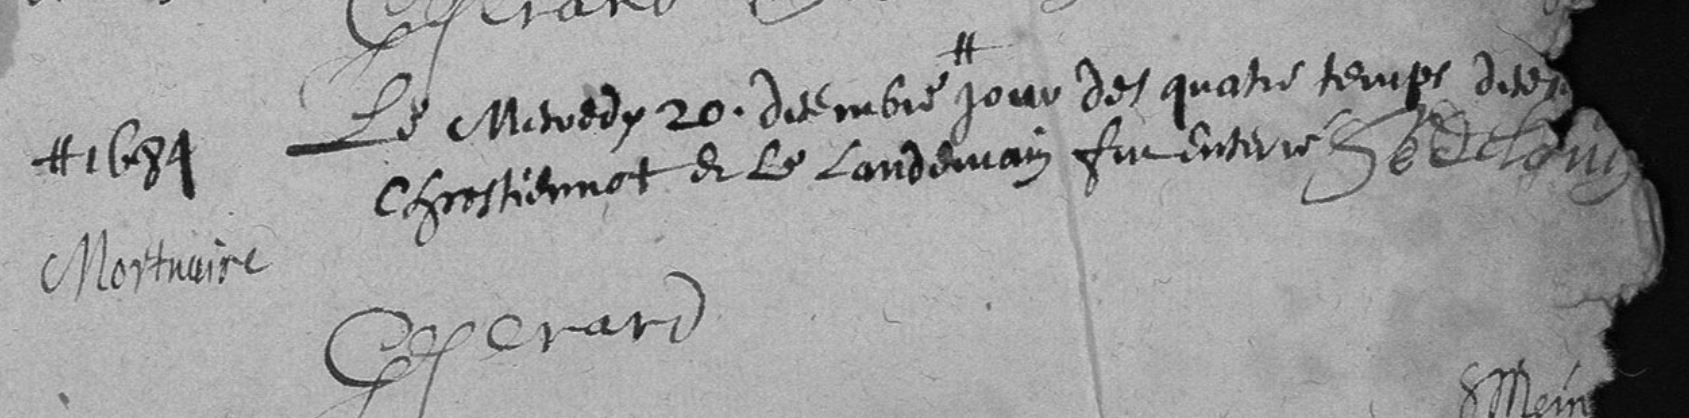 Gerard
#
Le Mercredy 20. decembre jour des quatre temps deced
#1684
Chrestiennot et Le Landemain fut enterré
Mortuaire
Gerard